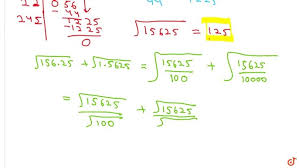 1 2 0 56
44
245 1225
-1225
0
√15625 = 125
√156.25 + √1.5625 = √15625/100 + √15625/10000
= √15625/√100 + √15625/√